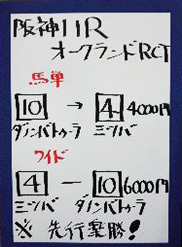 阪神11R
オークランドRCT
馬単
10 → 4 4000円
ダノンバトゥーラ ミツバ
ワイド
4 — 10 6000円
ミツバ ダノンバトゥーラ
※ 先行楽勝！